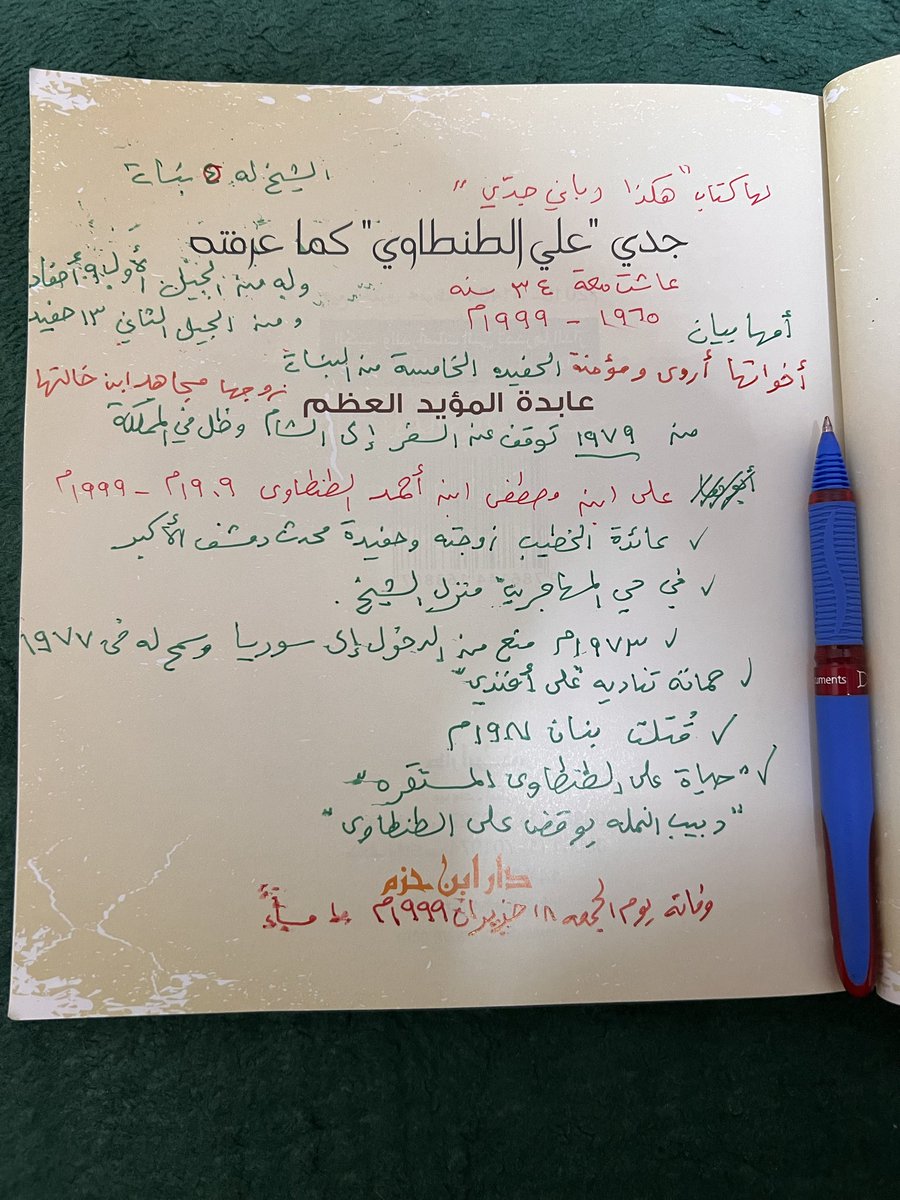 الشيخ له ٤ بنات
لها كتاب "هكذا رباني جدّي"
جدي "علي الطنطاوي" كما عرفته
وله من الجيل الأول ٩ أحفاد
ومن الجيل الثاني ١٣ حفيد
عاشت معة ٣٤ سنه
١٩٦٥ - ١٩٩٩م
أمها بيان
أخواتها أروى ومؤمنة الحفيده الخامسة من البنات
زوجها مجاهد ابن خالتها
عابدة المؤيد العظم
منه ١٩٧٩ توقف عن السفر إلى الشام وظل في المملكة
على ابن مصطفى ابن أحمد الطنطاوى ١٩٠٩م - ١٩٩٩م
✓ عائدة الخطيب زوجته وحفيدة محدث دمشق الأكبر
✓ في حي المهاجرين منزل الشيخ.
✓ ١٩٧٣م منع من الدخول إلى سوريا وسمح له فى ١٩٧٧
✓ حماتة تناديه "على أفندي"
✓ قُتلت بنان ١٩٨١م
✓ "حياة على الطنطاوى المستقره"
"دبيب النمله يوقض على الطنطاوى"
دار ابن حزم
وفاتة يوم الجمعه ١٨ حزيران ١٩٩٩م مساءً